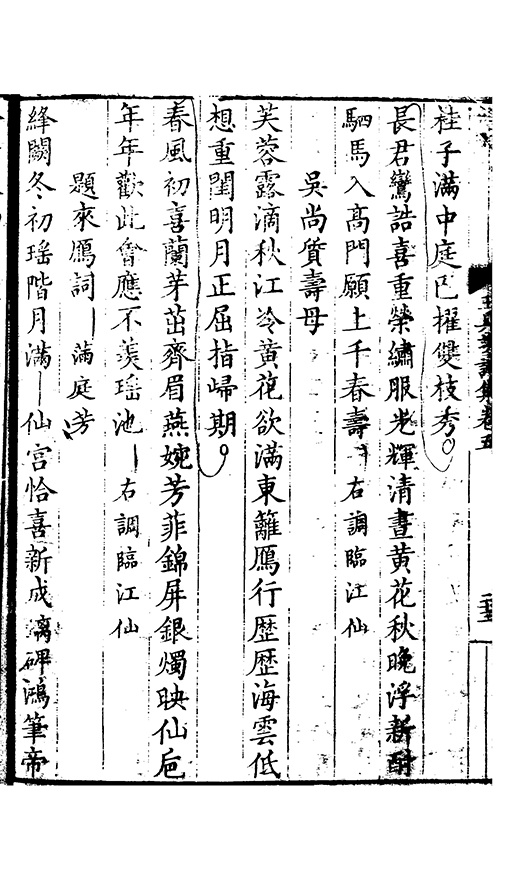 桂子滿中庭巳擢雙枝秀
長君鸞誥喜重榮繡服光輝清晝黄花秋晚浮新酎
駟馬入高門願上千春壽 右調臨江仙
吳尚質壽母
芙蓉露滴秋江冷黄花欲滿東籬鴈行歷歷海雲低
想重閨明月正屈指歸期
春風初喜蘭芽茁齊眉燕婉芳菲錦屏銀燭映仙巵
年年歡此會應不羨瑶池 右調臨江仙
題來鴈詞 滿庭芳
絳闕冬初瑶階月滿仙宫恰喜新成漓碑鴻筆帝